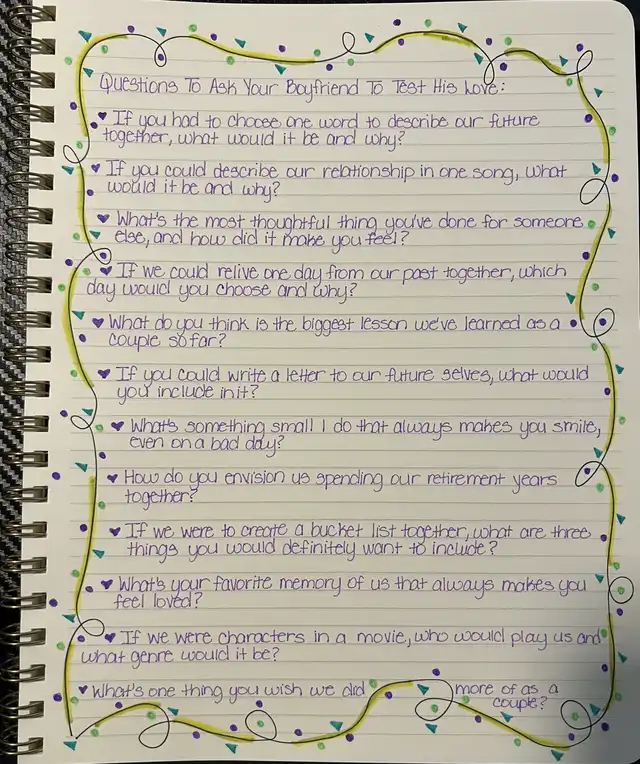 Questions To Ask Your Boyfriend To Test His Love:
♥ If you had to choose one word to describe our future
together, what would it be and why?
♥ If you could describe our relationship in one song, what
would it be and why?
♥ What's the most thoughtful thing you've done for someone
else, and how did it make you feel?
♥ If we could relive one day from our past together, which
day would you choose and why?
♥ What do you think is the biggest lesson we've learned as a
couple so far?
♥ If you could write a letter to our future selves, what would
you include in it?
♥ What's something small I do that always makes you smile,
even on a bad day?
♥ How do you envision us spending our retirement years
together?
♥ If we were to create a bucket list together, what are three
things you would definitely want to include?
♥ What's your favorite memory of us that always makes you
feel loved?
♥ If we were characters in a movie, who would play us and
what genre would it be?
♥ What's one thing you wish we did more of as a
couple?